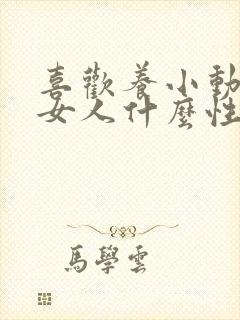 喜歡養小動
女人什麼性
馬學雲